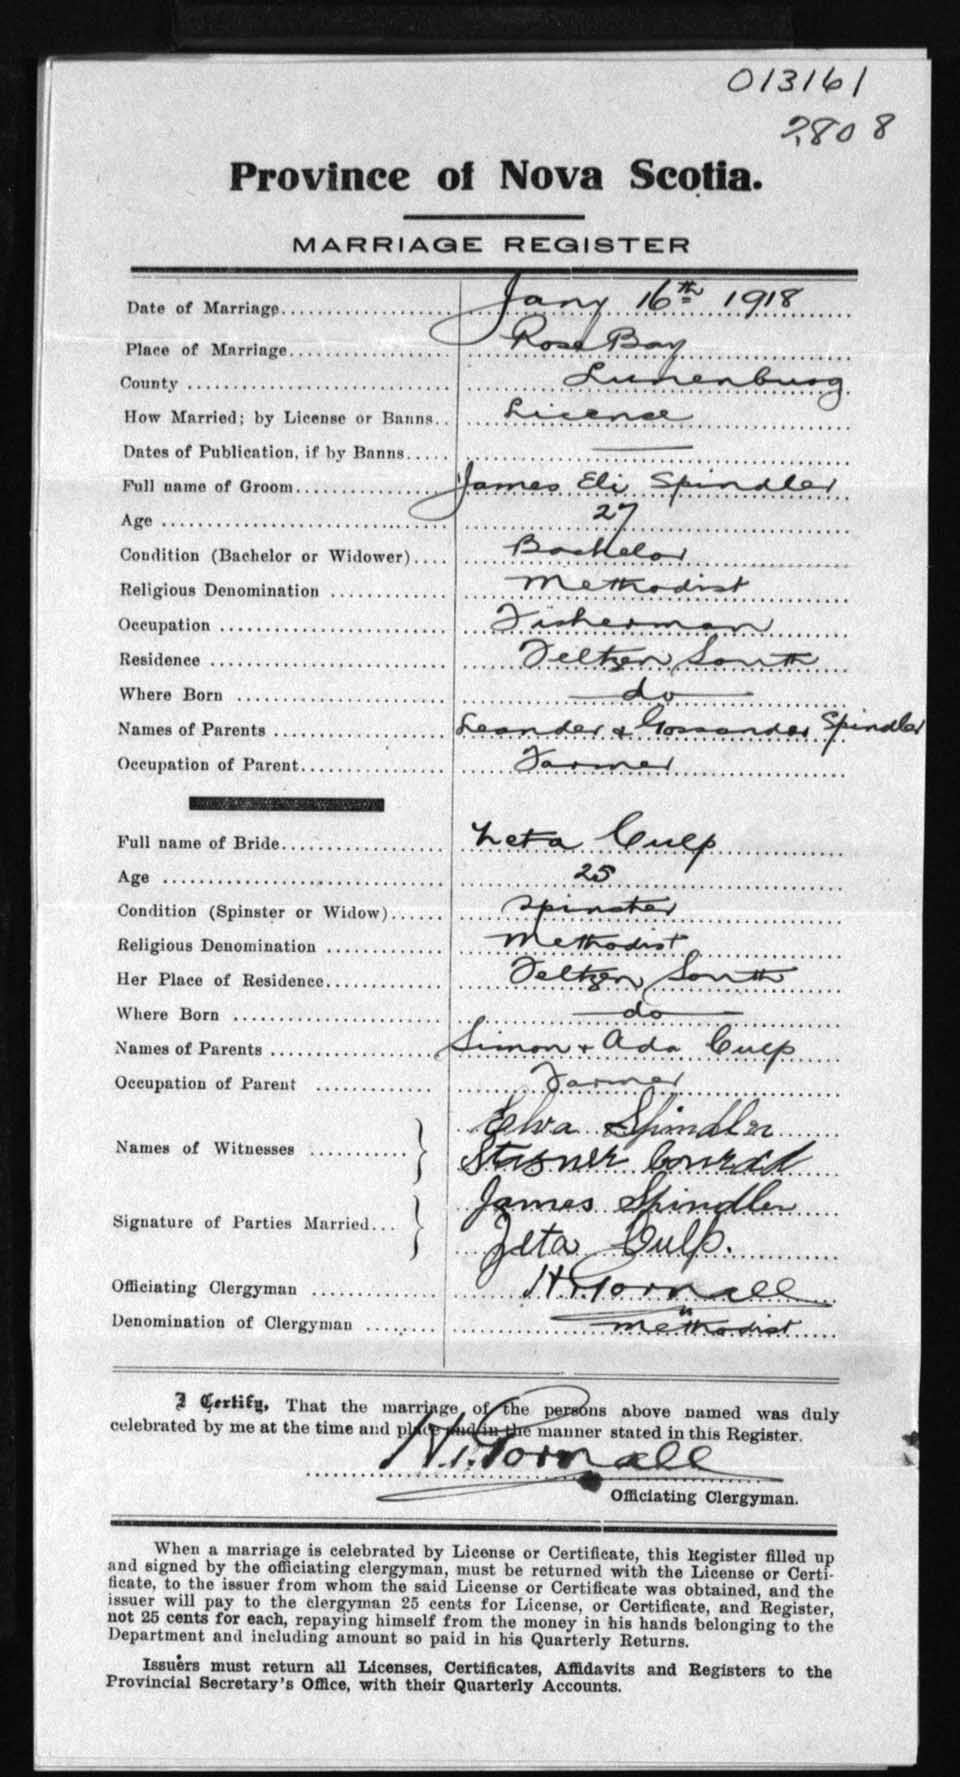 013161
2808
Province of Nova Scotia.
MARRIAGE REGISTER
Date of Marriage Jany 16th 1918
Place of Marriage Rose Bay
County Lunenburg
How Married; by License or Banns License
Dates of Publication, if by Banns —
Full name of Groom James Eli Spindler
Age 27
Condition (Bachelor or Widower) Bachelor
Religious Denomination Methodist
Occupation Fisherman
Residence Feltzen South
Where Born do
Names of Parents Leander & Spindler
Occupation of Parent Farmer
Full name of Bride Zeta Culp
Age 25
Condition (Spinster or Widow) Spinster
Religious Denomination Methodist
Her Place of Residence Feltzen South
Where Born do
Names of Parents Simon + Ada Culp
Occupation of Parent Farmer
Elva Spindler
Names of Witnesses Conrad
James Spindler
Signature of Parties Married Zeta Culp.
Officiating Clergyman H. Gornall
Denomination of Clergyman Methodist
I Certify, That the marriage of the persons above named was duly
celebrated by me at the time and place and in the manner stated in this Register.
Gornall
Officiating Clergyman.
When a marriage is celebrated by License or Certificate, this Register filled up
and signed by the officiating clergyman, must be returned with the License or Certi-
ficate, to the issuer from whom the said License or Certificate was obtained, and the
issuer will pay to the clergyman 25 cents for License, or Certificate, and Register,
not 25 cents for each, repaying himself from the money in his hands belonging to the
Department and including amount so paid in his Quarterly Returns.
Issuers must return all Licenses, Certificates, Affidavits and Registers to the
Provincial Secretary's Office, with their Quarterly Accounts.